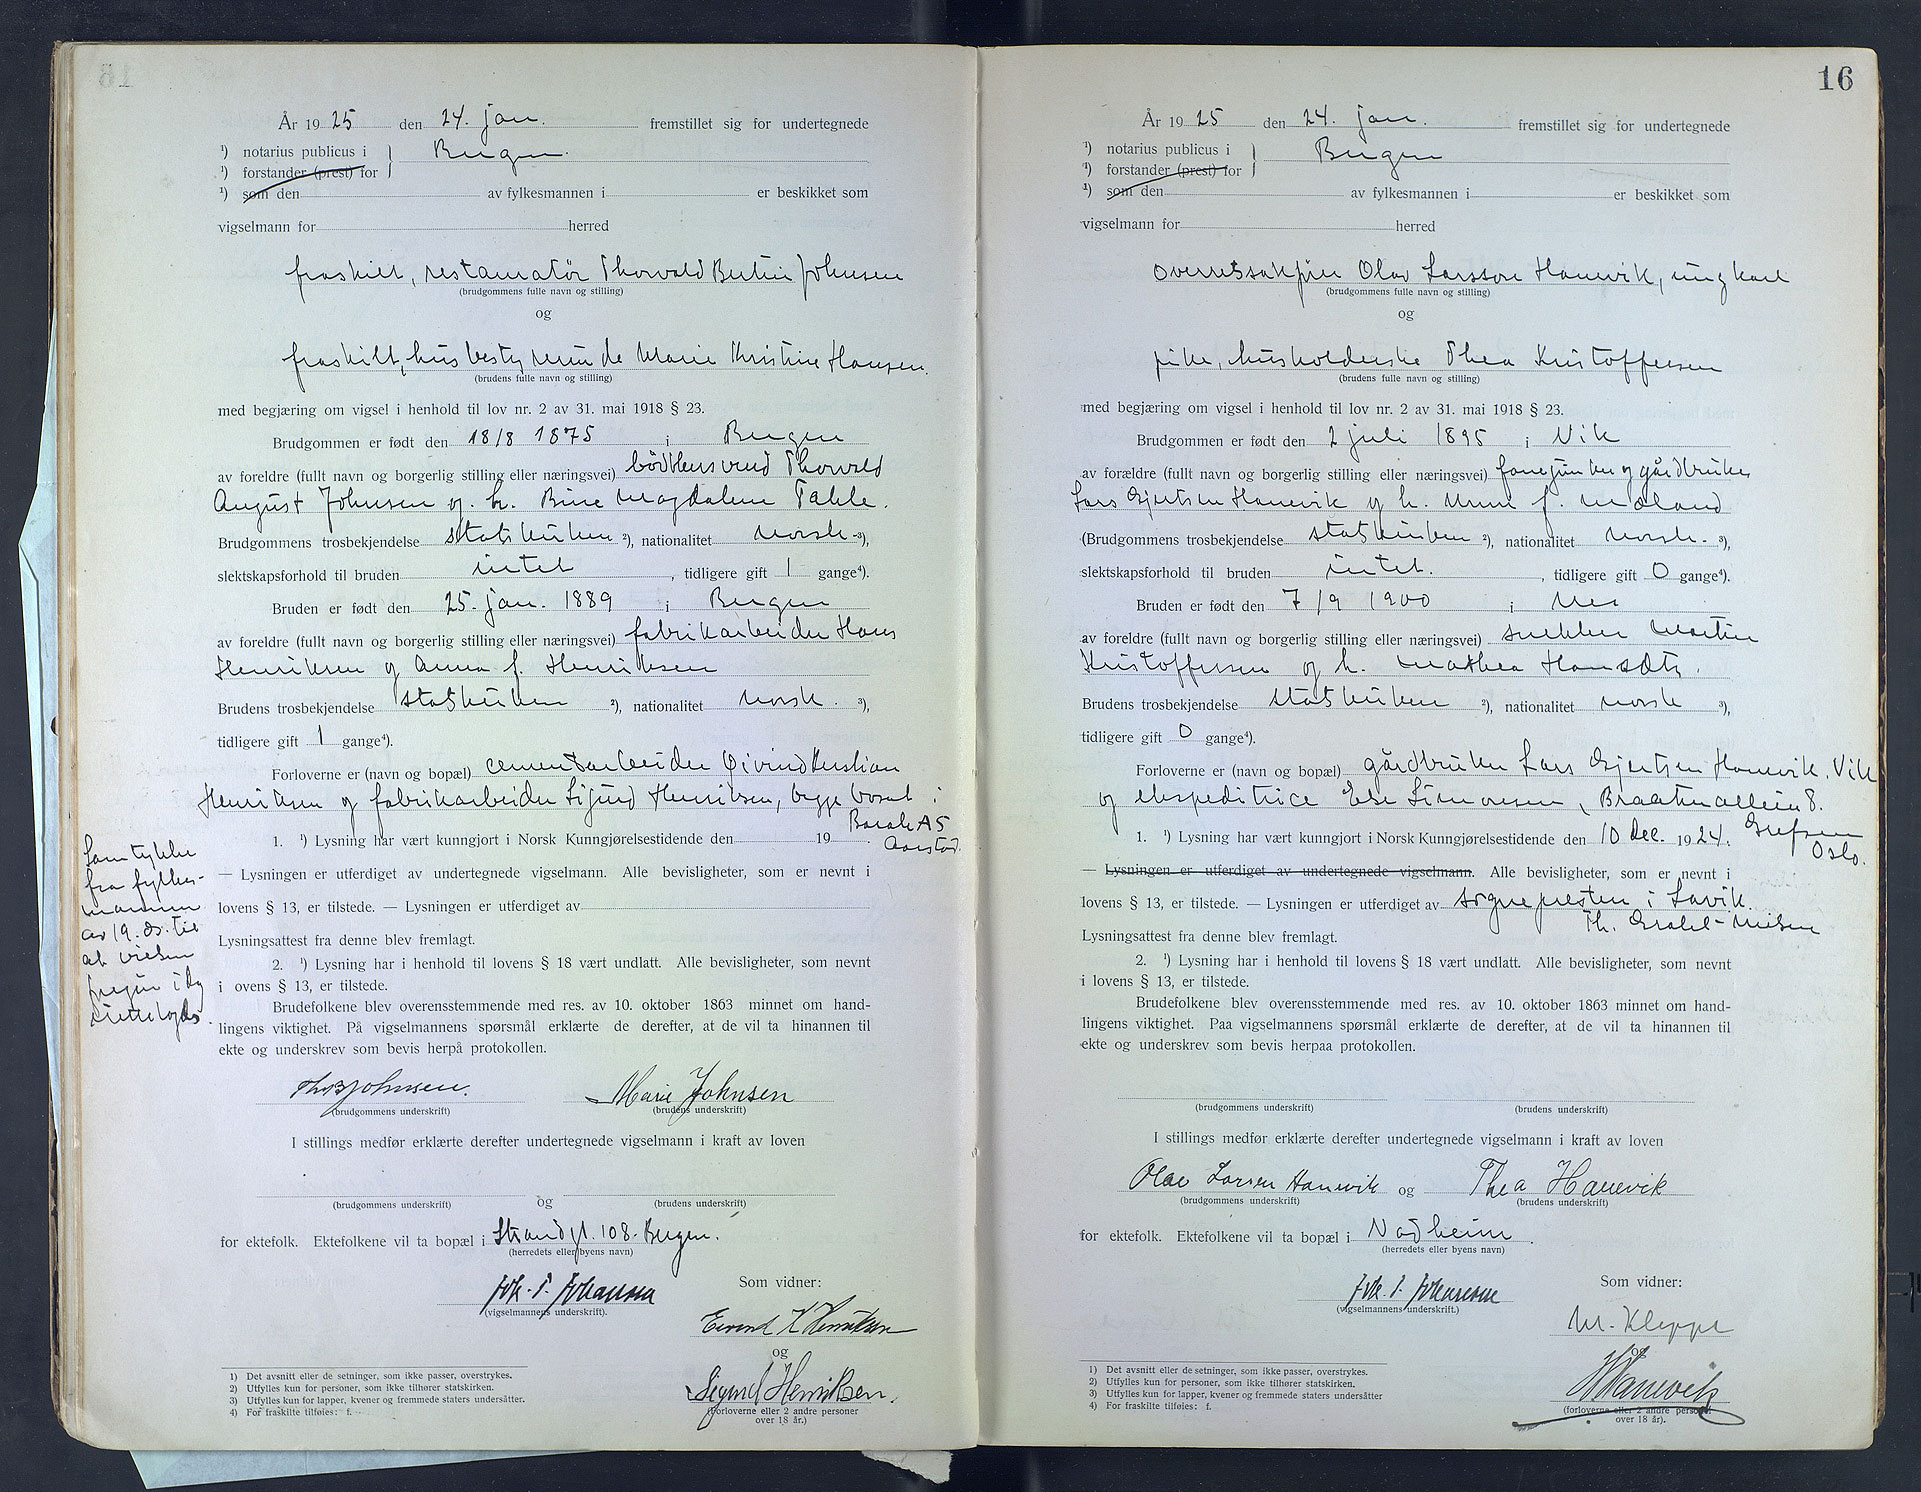 År 1925 den 24. jan. fremstillet sig for undertegnede
¹) notarius publicus i Bergen.
¹) forstander (prest) for
¹) som den av fylkesmannen i er beskikket som
vigselmann for herred
fraskilt, restauratør Thorvald Bertin Johnsen
(brudgommens fulle navn og stilling)
og
fraskilt, husbestyrerinde Marie Kristine Hansen.
(brudens fulle navn og stilling)
med begjæring om vigsel i henhold til lov nr. 2 av 31. mai 1918 § 23.
Brudgommen er født den 18/8 1875 i Bergen
av foreldre (fullt navn og borgerlig stilling eller næringsvei) bødkersvend Thorvald
August Johnsen og h. Magdalene
Brudgommens trosbekjendelse statskirken ²), nationalitet norsk ³),
slektskapsforhold til bruden intet, tidligere gift 1 gange⁴).
Bruden er født den 25. jan. 1889 i Bergen
av foreldre (fullt navn og borgerlig stilling eller næringsvei) fabrikarbeider Hans
Henriksen og Anna f. Henriksen
Brudens trosbekjendelse statskirken ²), nationalitet norsk. ³),
tidligere gift 1 gange⁴).
Forloverne er (navn og bopæl) cementarbeider Øivind Kristian
Henriksen og fabrikarbeider Sigurd Henriksen, begge bosat i
A5
Aarstad.
1. ¹) Lysning har vært kunngjort i Norsk Kunngjørelsestidende den 19 .
— Lysningen er utferdiget av undertegnede vigselmann. Alle bevisligheter, som er nevnt i
lovens § 13, er tilstede. — Lysningen er utferdiget av
Lysningsattest fra denne blev fremlagt.
2. ¹) Lysning har i henhold til lovens § 18 vært undlatt. Alle bevisligheter, som nevnt
i ovens § 13, er tilstede.
Brudefolkene blev overensstemmende med res. av 10. oktober 1863 minnet om hand-
lingens viktighet. På vigselmannens spørsmål erklærte de derefter, at de vil ta hinannen til
ekte og underskrev som bevis herpå protokollen.
Samtykke
fra fylkes-
mannen
av 19. ds. til
at vielsen
foregår i dag
Th B Johnsen. Marie Johnsen
(brudgommens underskrift) (brudens underskrift)
I stillings medfør erklærte derefter undertegnede vigselmann i kraft av loven
og
(brudgommens underskrift) (brudens underskrift)
for ektefolk. Ektefolkene vil ta bopæl i Strandgt. 108. Bergen.
(herredets eller byens navn)
Joh. T. Johansen Som vidner:
(vigselmannens underskrift).
Eivind K Henriksen
og
Sigurd Henriksen.
(forloverne eller 2 andre personer
over 18 år.)
1) Det avsnitt eller de setninger, som ikke passer, overstrykes.
2) Utfylles kun for personer, som ikke tilhører statskirken.
3) Utfylles kun for lapper, kvener og fremmede staters undersåtter.
4) For fraskilte tilføies: f.
16
År 1925 den 24. jan. fremstillet sig for undertegnede
¹) notarius publicus i Bergen
¹) forstander (prest) for
¹) som den av fylkesmannen i er beskikket som
vigselmann for herred
overretssakfører Olav Larsson Hanevik, ungkarl
(brudgommens fulle navn og stilling)
og
pike, husholderske Thea Kristoffersen
(brudens fulle navn og stilling)
med begjæring om vigsel i henhold til lov nr. 2 av 31. mai 1918 § 23.
Brudgommen er født den 2 juli 1895 i Vik
av forældre (fullt navn og borgerlig stilling eller næringsvei) fanejunker og gårdbruker
Lars Gjertsen Hanevik og h. f. Mæland
(Brudgommens trosbekjendelse statskirken ²), nationalitet norsk. ³),
slektskapsforhold til bruden intet. , tidligere gift 0 gange⁴).
Bruden er født den 7/9 1900 i Nes
av foreldre (fullt navn og borgerlig stilling eller næringsvei) snekker Martin
Kristoffersen og h. Mathea Hansdtr.
Brudens trosbekjendelse statskirken ²), nationalitet norsk ³),
tidligere gift 0 gange⁴).
Forloverne er (navn og bopæl) gårdbruker Lars Gjertsen Hanevik, Vik
og ekspeditrice Else Simonsen, Braatenalleen 8.
Grefsen
Oslo.
1. ¹) Lysning har vært kunngjort i Norsk Kunngjørelsestidende den 10 dec. 1924.
— Lysningen er utferdiget av undertegnede vigselmann. Alle bevisligheter, som er nevnt i
lovens § 13, er tilstede. — Lysningen er utferdiget av sognepresten i Lavik.
Th. -Nilsen
Lysningsattest fra denne blev fremlagt.
2. ¹) Lysning har i henhold til lovens § 18 vært undlatt. Alle bevisligheter, som nevnt
i lovens § 13, er tilstede.
Brudefolkene blev overensstemmende med res. av 10. oktober 1863 minnet om hand-
lingens viktighet. Paa vigselmannens spørsmål erklærte de derefter, at de vil ta hinannen til
ekte og underskrev som bevis herpaa protokollen.
(brudgommens underskrift) (brudens underskrift)
I stillings medfør erklærte derefter undertegnede vigselmann i kraft av loven
Olav Larsen Hanevik og Thea Hanevik
(brudgommens underskrift) (brudens underskrift)
for ektefolk. Ektefolkene vil ta bopæl i Vadheim.
(herredets eller byens navn)
Joh. T. Johansen Som vidner:
(vigselmannens underskrift).
M. Kleppe
og
Hanevik
(forloverne eller 2 andre personer
over 18 år).
1) Det avsnitt eller de setninger, som ikke passer, overstrykes.
2) Utfylles kun for personer, som ikke tilhører statskirken.
3) Utfylles kun for lapper, kvener og fremmede staters undersåtter
4) For fraskilte tilføies: f.